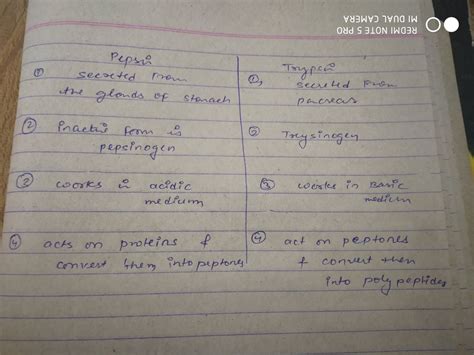 REDMI NOTE 5 PRO
MI DUAL CAMERA
Pepsin
① secreted from
the glands of stomach
② inactive form is
pepcinogen
③ works in acidic
medium
④ acts on proteins &
convert them into peptones
Trypsin
①, secreted from
pancreas
② Trysinogen
③ works in Basic
medium
④ act on peptones
& convert then
into polypeptides